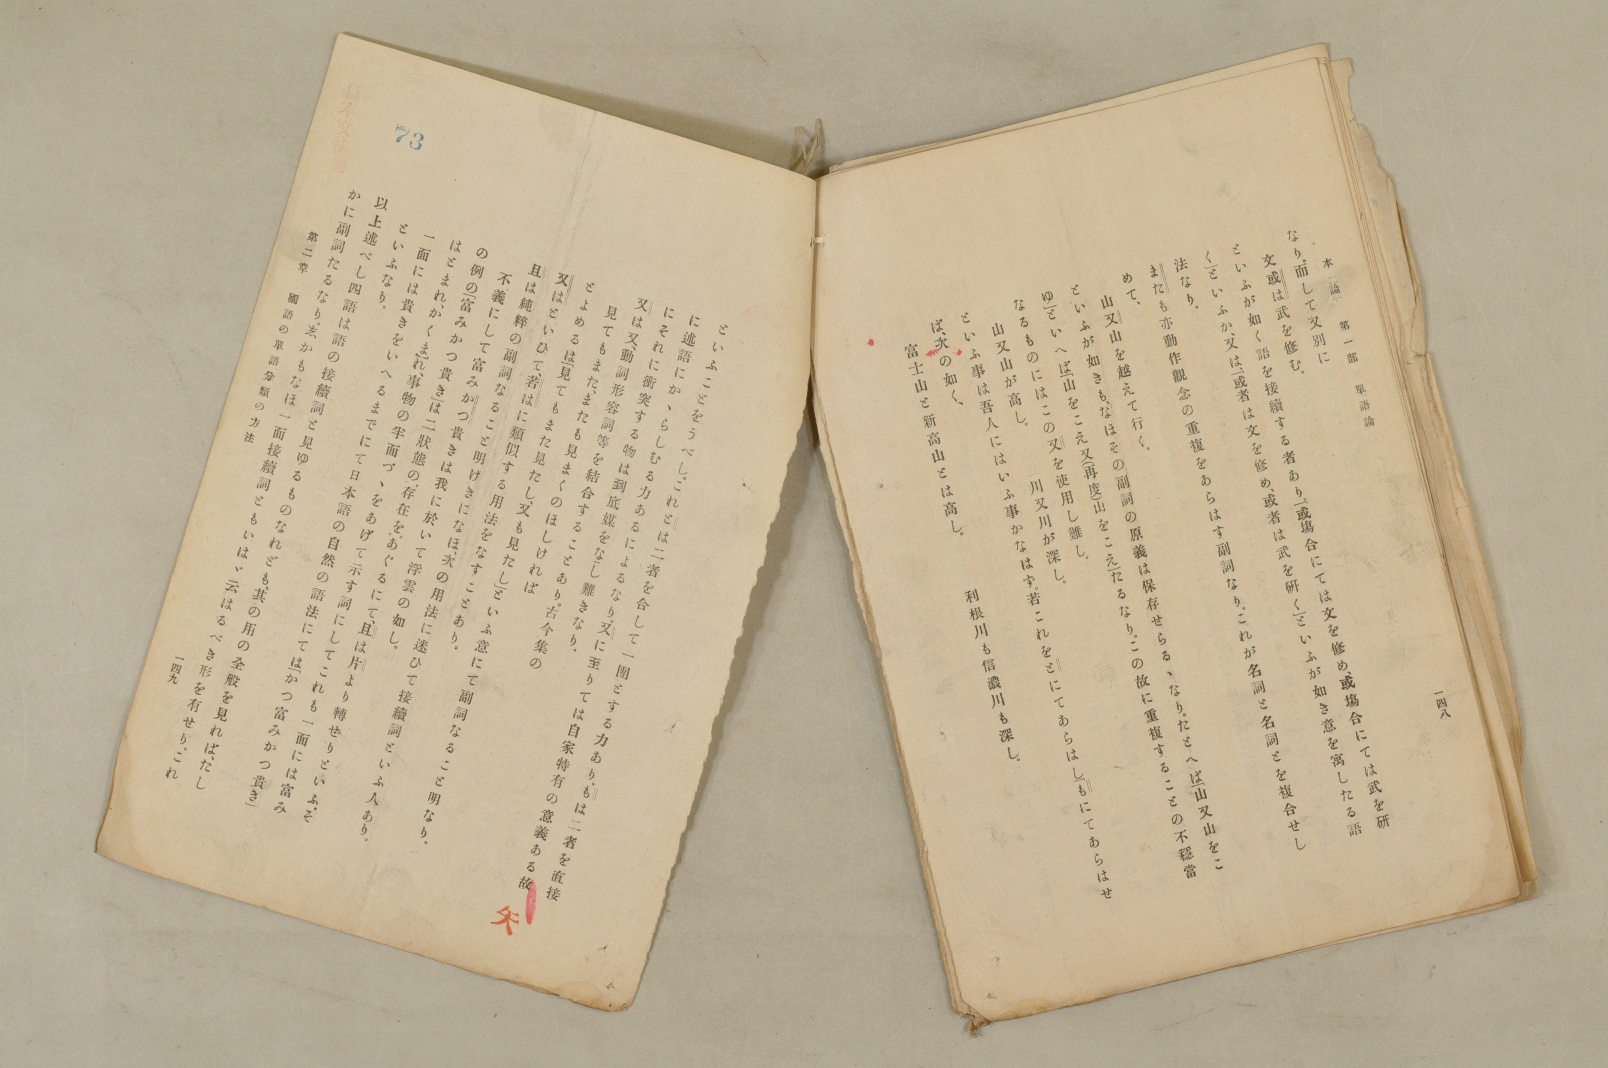 本論　第一部　單語論　一四八
なり。而して又別に
文或は武を修む。
といふが如く語を接續する者あり。「或塲合にては文を修め、或塲合にては武を研
く」といふか、又は「或者は文を修め或者は武を研く」といふが如き意を寓したる語
法なり。
またも亦動作觀念の重複をあらはす副詞なり。これが名詞と名詞とを複合せし
めて、
山又山を越えて行く。
といふが如きも、なほその副詞の原義は保存せらるゝなり。たとへば「山又山をこ
ゆ」といへば「山をこえ又(再度)山をこえ」たるなり。この故に重複することの不穩當
なるものにはこの又を使用し難し。
山又山が高し。　川又川が深し。
といふ事は吾人にはいふ事かなはず。若これをとにてあらはし、もにてあらはせ
ば、次の如く、
富士山と新高山とは高し。　利根川も信濃川も深し。
といふことをうべし。これとは二者を合して一團とする力あり、もは二者を直接
に述語にかゝらしむる力あるによるなり。又に至りては自家特有の意義ある故
にそれに衝突する物は到底媒をなし難きなり。
又は又、動詞形容詞等を結合することあり。古今集の
見てもまた、またも見まくのほしければ
とよめるは「見てもまた見たし、又も見たし」といふ意にて副詞なること明なり。
又はといひて、若はに類似する用法をなすことあり。
且は純粹の副詞なること明けきになほ、次の用法に迷ひて接續詞といふ人あり。
不義にして富みかつ貴きは我に於いて浮雲の如し。
の例の「富みかつ貴き」は二狀態の存在を、あぐるにて、且は片より轉せりといふ。そ
はとまれ、かくまれ、事物の半面づゝをあげて示す詞にしてこれも一面には富み
一面には貴きをいへるまでにて日本語の自然の語法にては「かつ富みかつ貴き」
といふなり。
以上述べし四語は語の接續詞と見ゆるものなれども、其の用の全般を見れば、たし
かに副詞たるなり。志かもなほ一面接續詞ともいはゞ云はるべき形を有せり。これ
第二章　國語の單語分類の方法　一四九
73